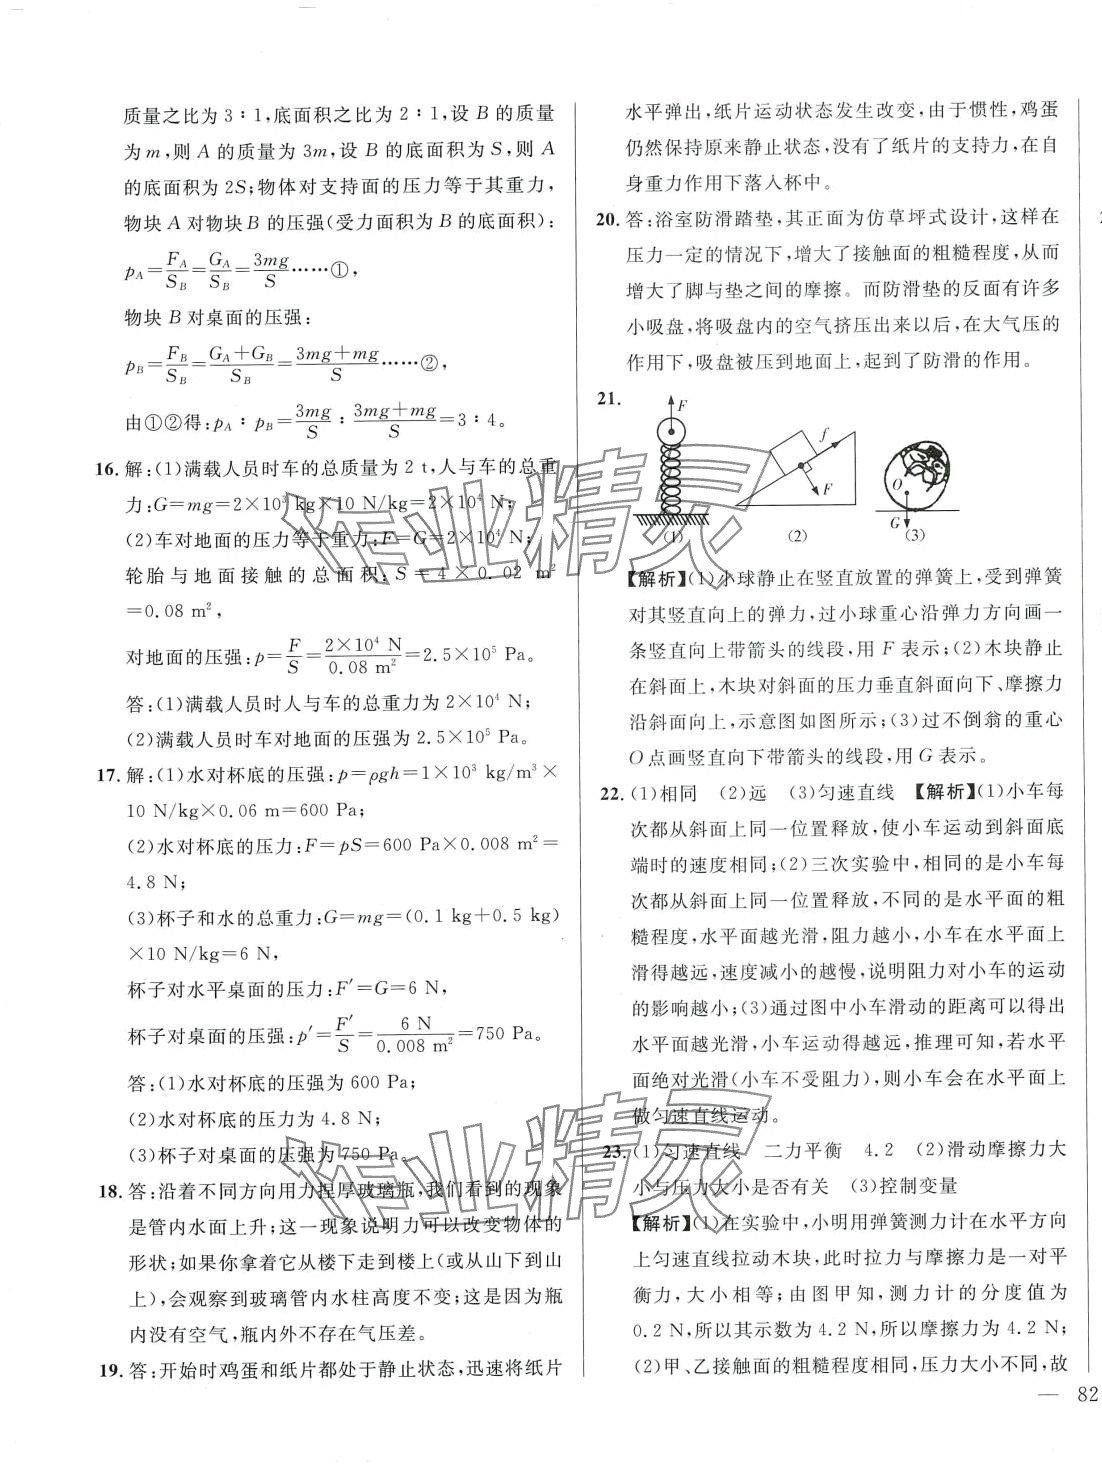 质量之比为 3∶1,底面积之比为 2∶1,设 B 的质量
为 m,则 A 的质量为 3m,设 B 的底面积为 S,则 A
的底面积为 2S;物体对支持面的压力等于其重力,
物块 A 对物块 B 的压强(受力面积为 B 的底面积):
p_A=F_A/S_B=G_A/S_B=3mg/S……①,
物块 B 对桌面的压强:
p_B=F_B/S_B=(G_A+G_B)/S_B=(3mg+mg)/S……②,
由①②得:p_A∶p_B=3mg/S∶(3mg+mg)/S=3∶4。
16. 解:(1)满载人员时车的总质量为 2 t,人与车的总重
力:G=mg=2×10³ kg×10 N/kg=2×10⁴ N;
(2)车对地面的压力等于重力:F=G=2×10⁴ N;
轮胎与地面接触的总面积:S=4×0.02 m²
=0.08 m²,
对地面的压强:p=F/S=2×10⁴ N/0.08 m²=2.5×10⁵ Pa。
答:(1)满载人员时人与车的总重力为 2×10⁴ N;
(2)满载人员时车对地面的压强为 2.5×10⁵ Pa。
17. 解:(1)水对杯底的压强:p=ρgh=1×10³ kg/m³×
10 N/kg×0.06 m=600 Pa;
(2)水对杯底的压力:F=pS=600 Pa×0.008 m²=
4.8 N;
(3)杯子和水的总重力:G=mg=(0.1 kg+0.5 kg)
×10 N/kg=6 N,
杯子对水平桌面的压力:F′=G=6 N,
杯子对桌面的压强:p′=F′/S=6 N/0.008 m²=750 Pa。
答:(1)水对杯底的压强为 600 Pa;
(2)水对杯底的压力为 4.8 N;
(3)杯子对桌面的压强为 750 Pa。
18. 答:沿着不同方向用力捏厚玻璃瓶,我们看到的现象
是管内水面上升;这一现象说明力可以改变物体的
形状;如果你拿着它从楼下走到楼上(或从山下到山
上),会观察到玻璃管内水柱高度不变;这是因为瓶
内没有空气,瓶内外不存在气压差。
19. 答:开始时鸡蛋和纸片都处于静止状态,迅速将纸片
水平弹出,纸片运动状态发生改变,由于惯性,鸡蛋
仍然保持原来静止状态,没有了纸片的支持力,在自
身重力作用下落入杯中。
20. 答:浴室防滑踏垫,其正面为仿草坪式设计,这样在
压力一定的情况下,增大了接触面的粗糙程度,从而
增大了脚与垫之间的摩擦。而防滑垫的反面有许多
小吸盘,将吸盘内的空气挤压出来以后,在大气压的
作用下,吸盘被压到地面上,起到了防滑的作用。
21.
F
f
F
O
G
(1) (2) (3)
【解析】(1)小球静止在竖直放置的弹簧上,受到弹簧
对其竖直向上的弹力,过小球重心沿弹力方向画一
条竖直向上带箭头的线段,用 F 表示;(2)木块静止
在斜面上,木块对斜面的压力垂直斜面向下、摩擦力
沿斜面向上,示意图如图所示;(3)过不倒翁的重心
O 点画竖直向下带箭头的线段,用 G 表示。
22. (1)相同 (2)远 (3)匀速直线 【解析】(1)小车每
次都从斜面上同一位置释放,使小车运动到斜面底
端时的速度相同;(2)三次实验中,相同的是小车每
次都从斜面上同一位置释放,不同的是水平面的粗
糙程度,水平面越光滑,阻力越小,小车在水平面上
滑得越远,速度减小的越慢,说明阻力对小车的运动
的影响越小;(3)通过图中小车滑动的距离可以得出
水平面越光滑,小车运动得越远,推理可知,若水平
面绝对光滑(小车不受阻力),则小车会在水平面上
做匀速直线运动。
23. (1)匀速直线 二力平衡 4.2 (2)滑动摩擦力大
小与压力大小是否有关 (3)控制变量
【解析】(1)在实验中,小明用弹簧测力计在水平方向
上匀速直线拉动木块,此时拉力与摩擦力是一对平
衡力,大小相等;由图甲知,测力计的分度值为
0.2 N,所以其示数为 4.2 N,所以摩擦力为 4.2 N;
(2)甲、乙接触面的粗糙程度相同,压力大小不同,故
— 82
作业精灵
作业精灵